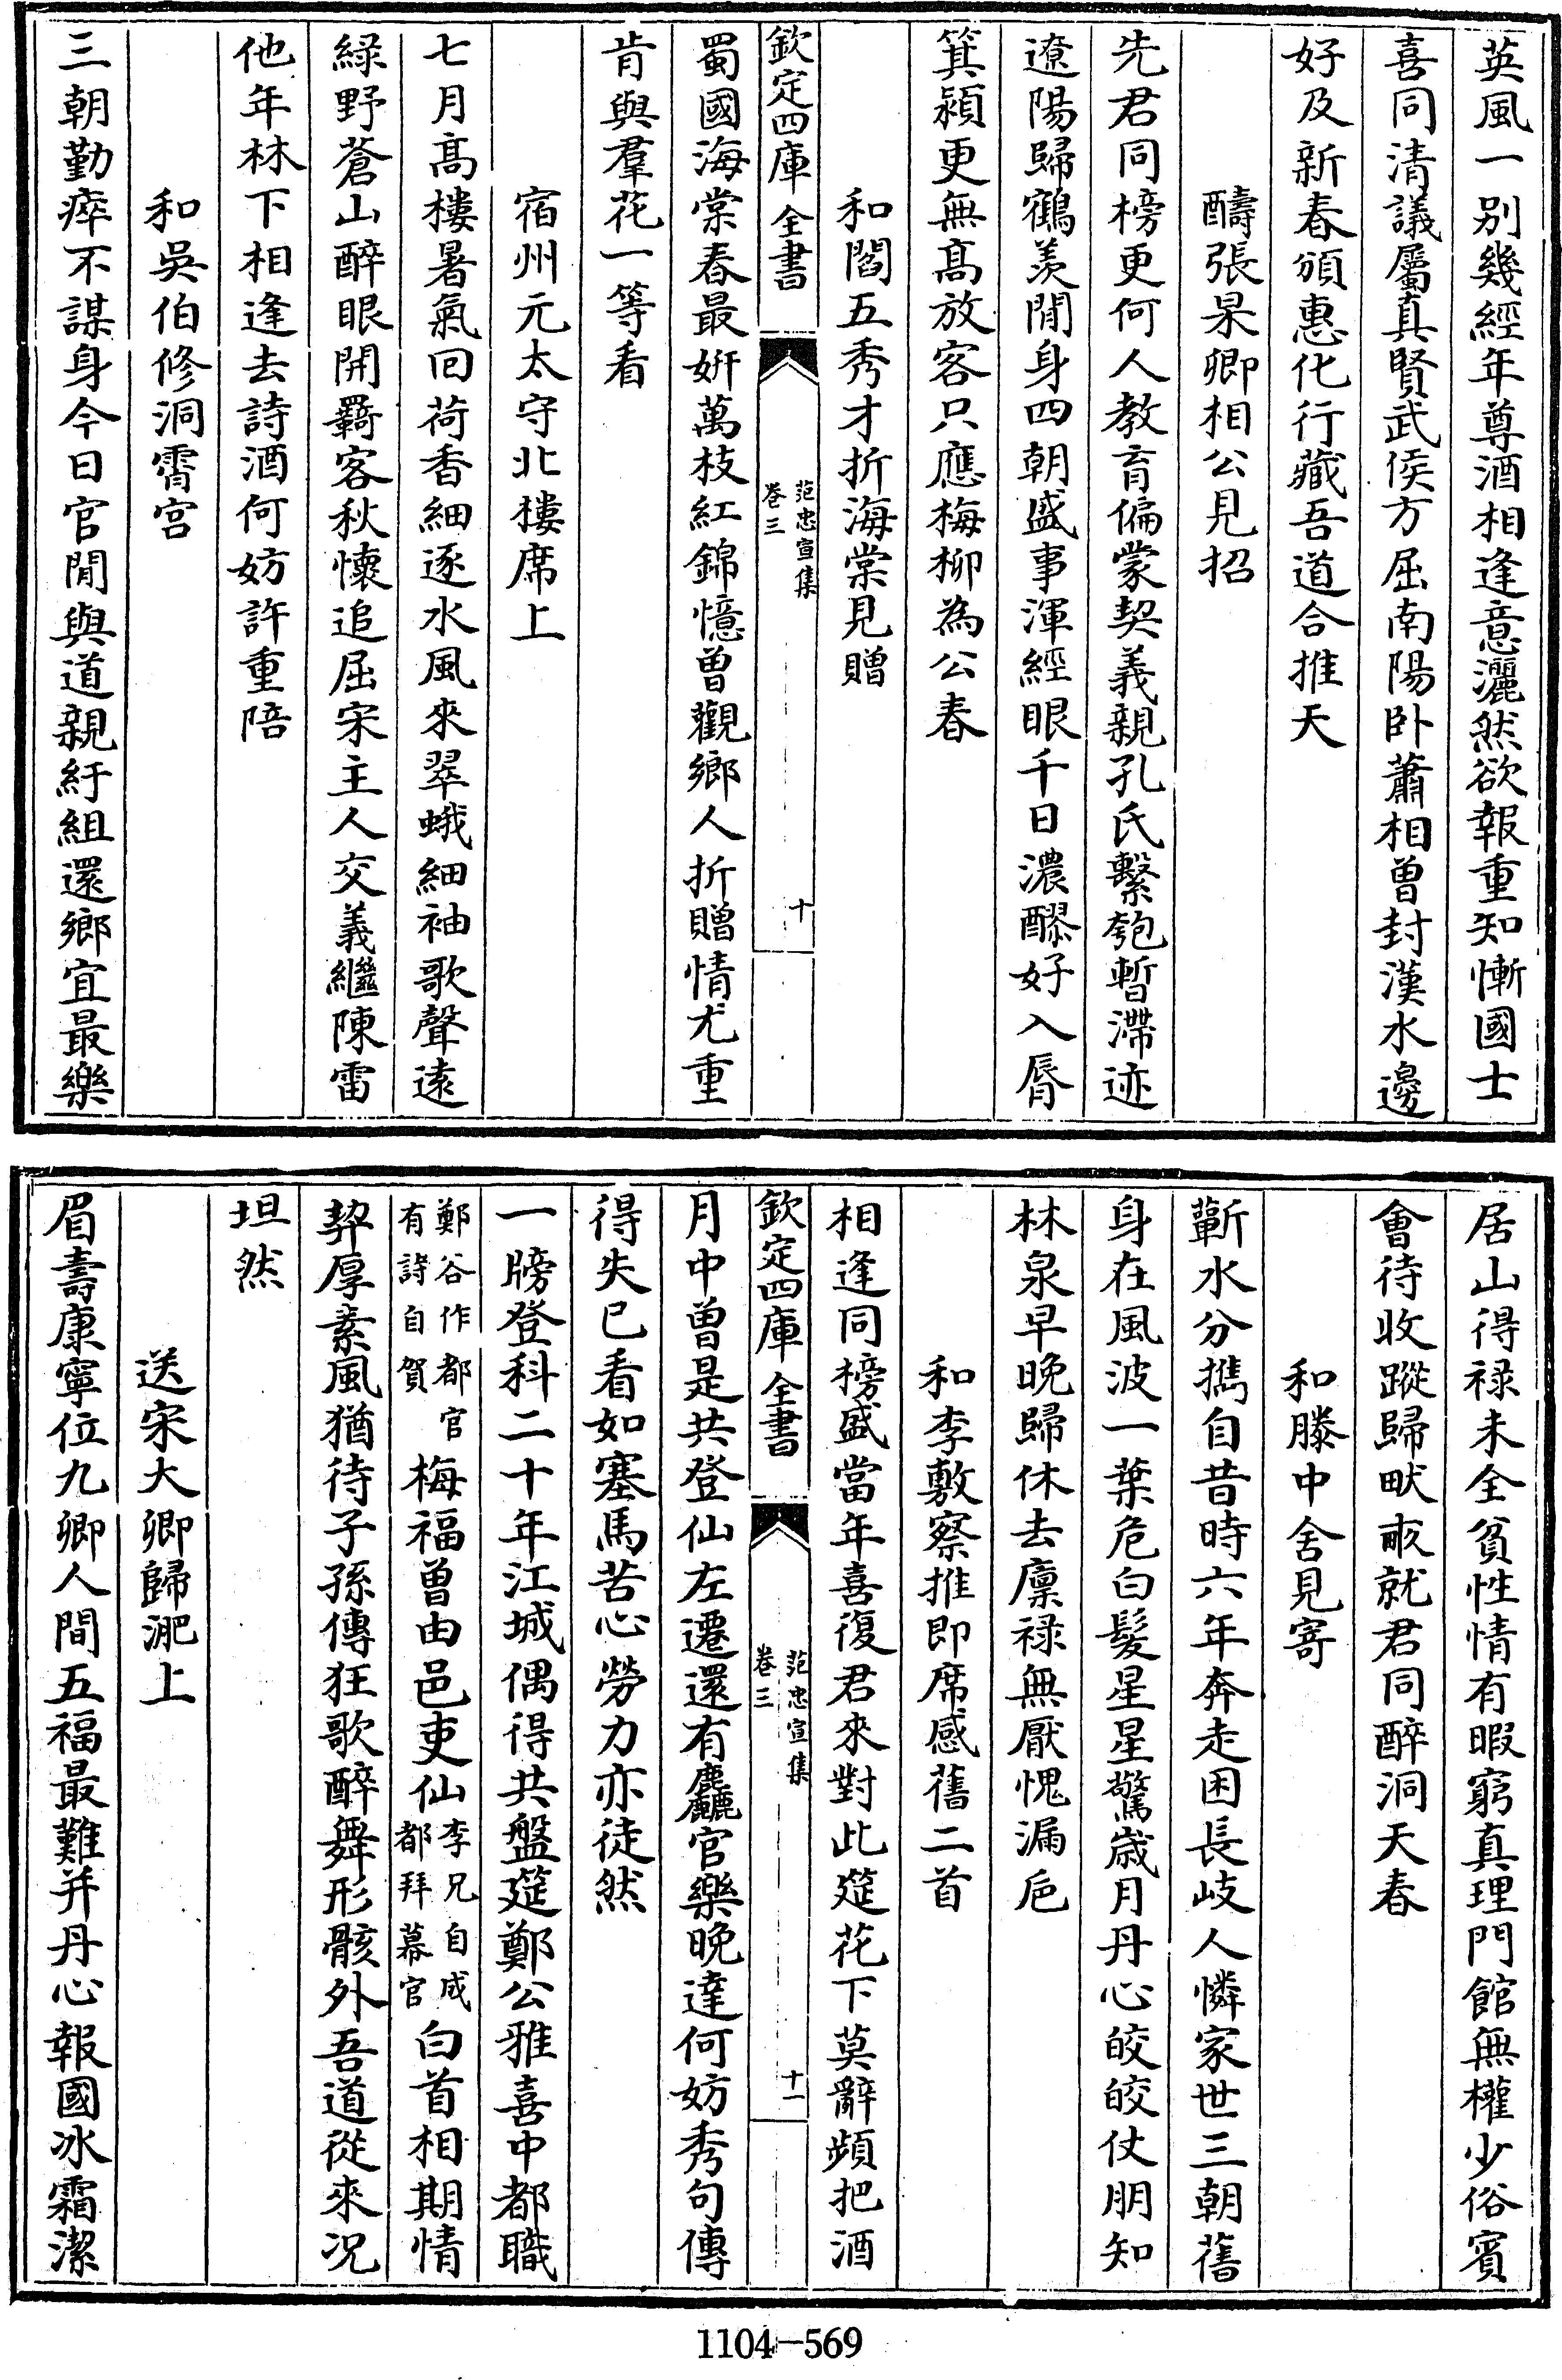 英風一別幾經年尊酒相逢意灑然欲報重知慚國士
喜同清議屬真賢武侯方屈南陽卧蕭相曽封漢水邊
好及新春頒惠化行藏吾道合推天
醻張杲卿相公見招
先君同榜更何人教育偏蒙契義親孔氏繫匏暫滯迹
遼陽歸鶴羨閒身四朝盛事渾經眼千日濃醪好入脣
箕潁更無髙放客只應梅柳為公春
和閻五秀才折海棠見贈
欽定四庫全書
范忠宣集
卷三
十
蜀國海棠春最妍萬枝紅錦憶曽觀鄉人折贈情尤重
肯與羣花一等看
宿州元太守北樓席上
七月髙樓暑氣回荷香細逐水風來翠蛾細袖歌聲逺
緑野蒼山醉眼開羇客秋懷追屈宋主人交義繼陳雷
他年林下相逢去詩酒何妨許重陪
和吳伯修洞霄宫
三朝勤瘁不謀身今日官閒與道親紆組還鄉宜最樂
居山得禄未全貧性情有暇窮真理門館無權少俗賓
會待收蹤歸畎畝就君同醉洞天春
和滕中舍見寄
蘄水分擕自昔時六年奔走困長岐人憐家世三朝舊
身在風波一葉危白髮星星驚歳月丹心皎皎仗朋知
林泉早晩歸休去廩禄無厭愧漏巵
和李敷察推即席感舊二首
相逢同榜盛當年喜復君來對此筵花下莫辭頻把酒
欽定四庫全書
范忠宣集
卷三
十一
月中曽是共登仙左遷還有麤官樂晩達何妨秀句傳
得失已看如塞馬苦心勞力亦徒然
一牓登科二十年江城偶得共盤筵鄭公雅喜中都職
鄭谷作都官有詩自賀梅福曽由邑吏仙李兄自成都拜幕官白首相期情
契厚素風猶待子孫傳狂歌醉舞形骸外吾道從來况
坦然
送宋大卿歸淝上
眉壽康寧位九卿人間五福最難并丹心報國冰霜潔
1104-569